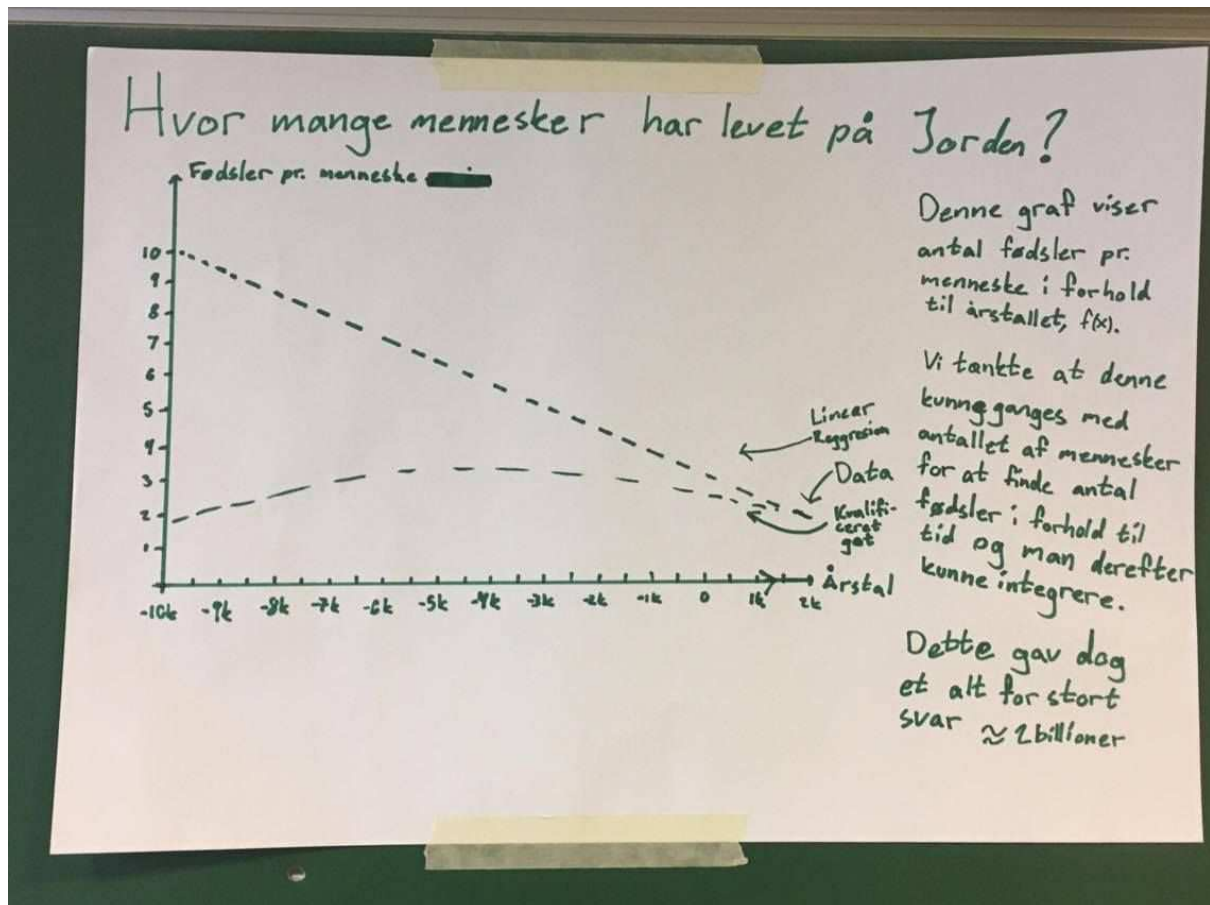 Hvor mange mennesker har levet på Jorden?
Fødsler pr. menneske
10
9
8
7
6
5
4
3
2
1
-10k -9k -8k -7k -6k -5k -4k -3k -2k -1k 0 1k 2k
Årstal
Linear
Reggresion
Data
Kvalifi-
ceret
gæt
Denne graf viser
antal fødsler pr.
menneske i forhold
til årstallet, f(x).
Vi tænkte at denne
kunne ganges med
antallet af mennesker
for at finde antal
fødsler i forhold til
tid og man derefter
kunne integrere.
Dette gav dog
et alt for stort
svar ≈ 2 billioner